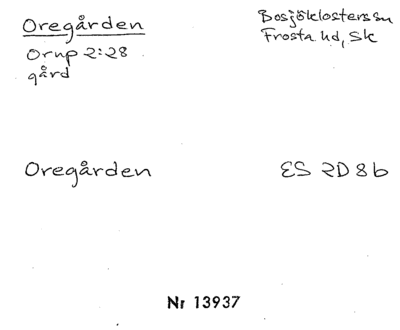 Oregården
Bosjöklosters sn
Frosta hd, Sk
Orup 2:28
gård
Oregården
ES 2D 8b
Nr 13937